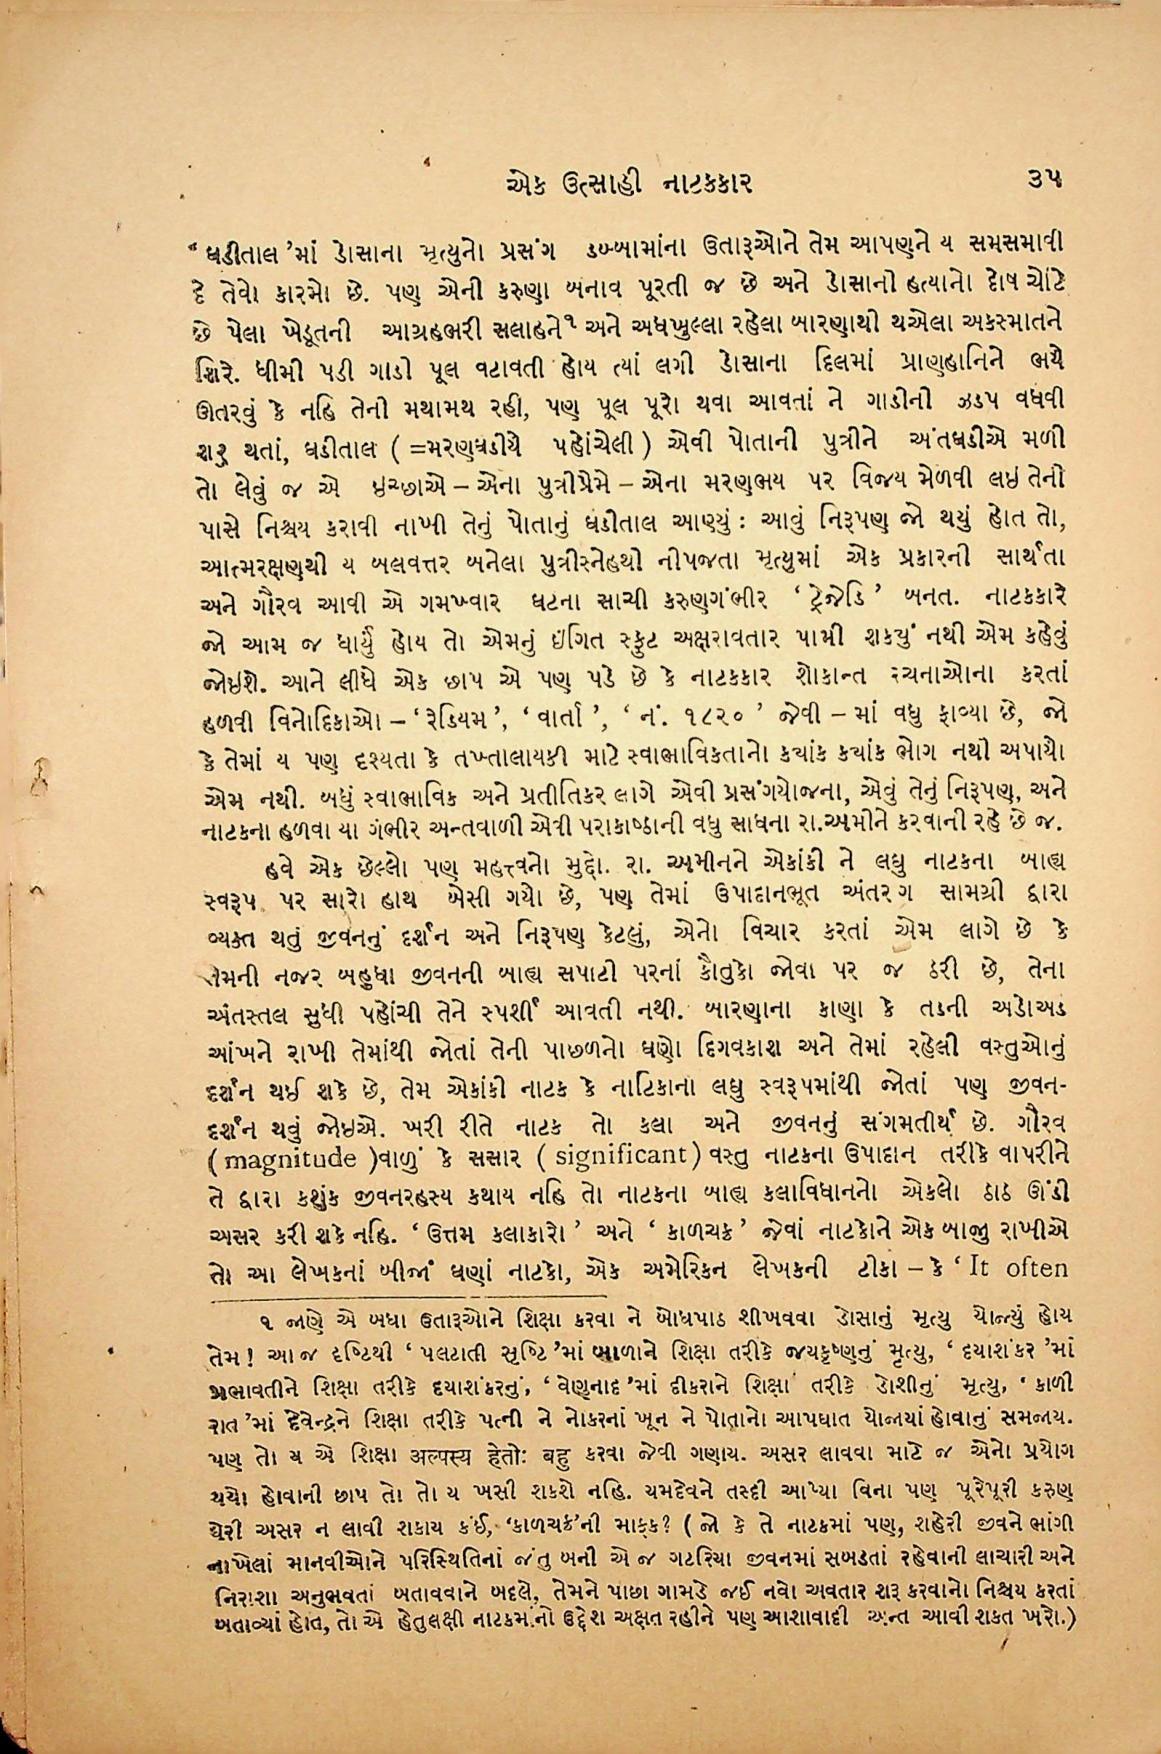 એક ઉત્સાહી નાટકકાર ૩૫
‘ઘડીતાલ’માં ડોસાના મૃત્યુનો પ્રસંગ ડબ્બામાંના ઉતારૂઓને તેમ આપણને ય સમસમાવી
દે તેવો કારમો છે. પણ એની કરુણા બનાવ પૂરતી જ છે અને ડોસાની હત્યાનો દોષ ચોંટે
છે પેલા ખેડૂતની આગ્રહભરી સલાહને૧ અને અધખુલ્લા રહેલા બારણાથી થએલા અકસ્માતને
શિરે. ધીમી પડી ગાડી પૂલ વટાવતી હોય ત્યાં લગી ડોસાના દિલમાં પ્રાણહાનિને ભયે
ઊતરવું કે નહિ તેની મથામથ રહી, પણ પૂલ પૂરો થવા આવતાં ને ગાડીની ઝડપ વધવી
શરૂ થતાં, ઘડીતાલ (=મરણઘડીયે પહોંચેલી) એવી પોતાની પુત્રીને અંતઘડીએ મળી
તો લેવું જ એ ઇચ્છાએ – એના પુત્રીપ્રેમે – એના મરણભય પર વિજય મેળવી લઇ તેની
પાસે નિશ્ચય કરાવી નાખી તેનું પોતાનું ઘડીતાલ આણ્યું : આવું નિરૂપણ જો થયું હોત તો,
આત્મરક્ષણથી ય બલવત્તર બનેલા પુત્રીસ્નેહથી નીપજતા મૃત્યુમાં એક પ્રકારની સાર્થતા
અને ગૌરવ આવી એ ગમખ્વાર ઘટના સાચી કરુણગંભીર ‘ટ્રેજેડિ’ બનત. નાટકકારે
જો આમ જ ધાર્યું હોય તો એમનું ઇંગિત સ્ફુટ અક્ષરાવતાર પામી શક્યું નથી એમ કહેવું
જોઇશે. આને લીધે એક છાપ એ પણ પડે છે કે નાટકકાર શોકાન્ત રચનાઓના કરતાં
હળવી વિનોદિકાઓ – ‘રેડિયમ’, ‘વાર્તા’, ‘નં. ૧૮૨૦’ જેવી – માં વધુ ફાવ્યા છે, જો
કે તેમાં ય પણ દૃશ્યતા કે તખ્તાલાયકી માટે સ્વાભાવિકતાનો ક્યાંક ક્યાંક ભોગ નથી અપાયો
એમ નથી. બધું સ્વાભાવિક અને પ્રતીતિકર લાગે એવી પ્રસંગયોજના, એવું તેનું નિરૂપણ, અને
નાટકના હળવા યા ગંભીર અન્તવાળી એવી પરાકાષ્ઠાની વધુ સાધના રા.અમીને કરવાની રહે છે જ.
હવે એક છેલ્લો પણ મહત્ત્વનો મુદ્દો. રા. અમીનને એકાંકી ને લઘુ નાટકના બાહ્ય
સ્વરૂપ પર સારો હાથ બેસી ગયો છે, પણ તેમાં ઉપાદાનભૂત અંતરંગ સામગ્રી દ્વારા
વ્યક્ત થતું જીવનનું દર્શન અને નિરૂપણ કેટલું, એનો વિચાર કરતાં એમ લાગે છે કે
તેમની નજર બહુધા જીવનની બાહ્ય સપાટી પરનાં કૌતુકો જોવા પર જ ઠરી છે, તેના
અંતસ્તલ સુધી પહોંચી તેને સ્પર્શી આવતી નથી. બારણાના કાણા કે તડની અડોઅડ
આંખને રાખી તેમાંથી જોતાં તેની પાછળનો ઘણો દિગવકાશ અને તેમાં રહેલી વસ્તુઓનું
દર્શન થઈ શકે છે, તેમ એકાંકી નાટક કે નાટિકાના લઘુ સ્વરૂપમાંથી જોતાં પણ જીવન-
દર્શન થવું જોઇએ. ખરી રીતે નાટક તો કલા અને જીવનનું સંગમતીર્થ છે. ગૌરવ
(magnitude)વાળું કે સસાર (significant) વસ્તુ નાટકના ઉપાદાન તરીકે વાપરીને
તે દ્વારા કશુંક જીવનરહસ્ય કથાય નહિ તો નાટકના બાહ્ય કલાવિધાનનો એકલો ઠાઠ ઊંડી
અસર કરી શકે નહિ. ‘ઉત્તમ કલાકારો’ અને ‘કાળચક્ર’ જેવાં નાટકોને એક બાજુ રાખીએ
તો આ લેખકનાં બીજાં ઘણાં નાટકો, એક અમેરિકન લેખકની ટીકા – કે ‘It often
૧ જાણે એ બધા ઉતારૂઓને શિક્ષા કરવા ને બોધપાઠ શીખવવા ડોસાનું મૃત્યુ યોજ્યું હોય
તેમ! આ જ દૃષ્ટિથી ‘પલટાતી સૃષ્ટિ’માં બાળાને શિક્ષા તરીકે જયકૃષ્ણનું મૃત્યુ, ‘દયાશંકર’માં
પ્રભાવતીને શિક્ષા તરીકે દયાશંકરનું, ‘વેણુનાદ’માં દીકરાને શિક્ષા તરીકે ડોશીનું મૃત્યુ, ‘કાળી
રાત’માં દેવેન્દ્રને શિક્ષા તરીકે પત્ની ને નોકરનાં ખૂન ને પોતાનો આપઘાત યોજાયાં હોવાનું સમજાય.
પણ તો ય એ શિક્ષા अल्पस्य हेतोः बहु કરવા જેવી ગણાય. અસર લાવવા માટે જ એનો પ્રયોગ
થયો હોવાની છાપ તો તો ય ખસી શકશે નહિ. યમદેવને તસ્દી આપ્યા વિના પણ પૂરેપૂરી કરુણ
ઘેરી અસર ન લાવી શકાય કંઈ, ‘કાળચક્ર’ની માફક? (જો કે તે નાટકમાં પણ, શહેરી જીવને ભાંગી
નાખેલાં માનવીઓને પરિસ્થિતિનાં જંતુ બની એ જ ગટરિયા જીવનમાં સબડતાં રહેવાની લાચારી અને
નિરાશા અનુભવતાં બતાવવાને બદલે, તેમને પાછા ગામડે જઈ નવો અવતાર શરૂ કરવાનો નિશ્ચય કરતાં
બતાવ્યાં હોત, તો એ હેતુલક્ષી નાટકમાંનો ઉદ્દેશ અક્ષત રહીને પણ આશાવાદી અન્ત આવી શકત ખરો.)